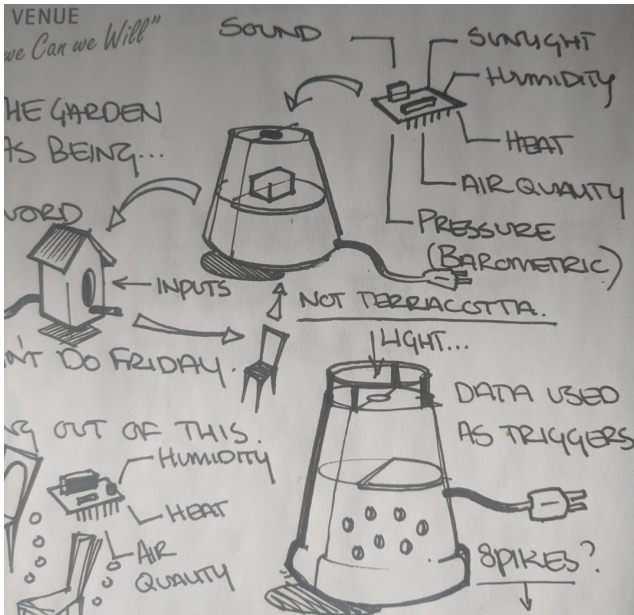 VENUE
we Can we Will"
SOUND
SUNLIGHT
HUMIDITY
HEAT
AIR QUALITY
PRESSURE
(BAROMETRIC)
HE GARDEN
AS BEING...
WORD
INPUTS
NOT TERRACOTTA.
N'T DO FRIDAY.
LIGHT...
DATA USED
AS TRIGGERS
NG OUT OF THIS.
HUMIDITY
HEAT
AIR
QUALITY
SPIKES?